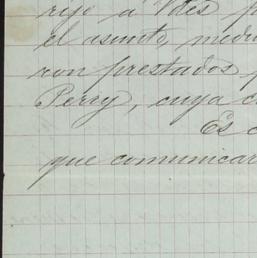 rije a Vdes
el asunto, medi
con prestados
Perry, cuya c
Es
que comunicar